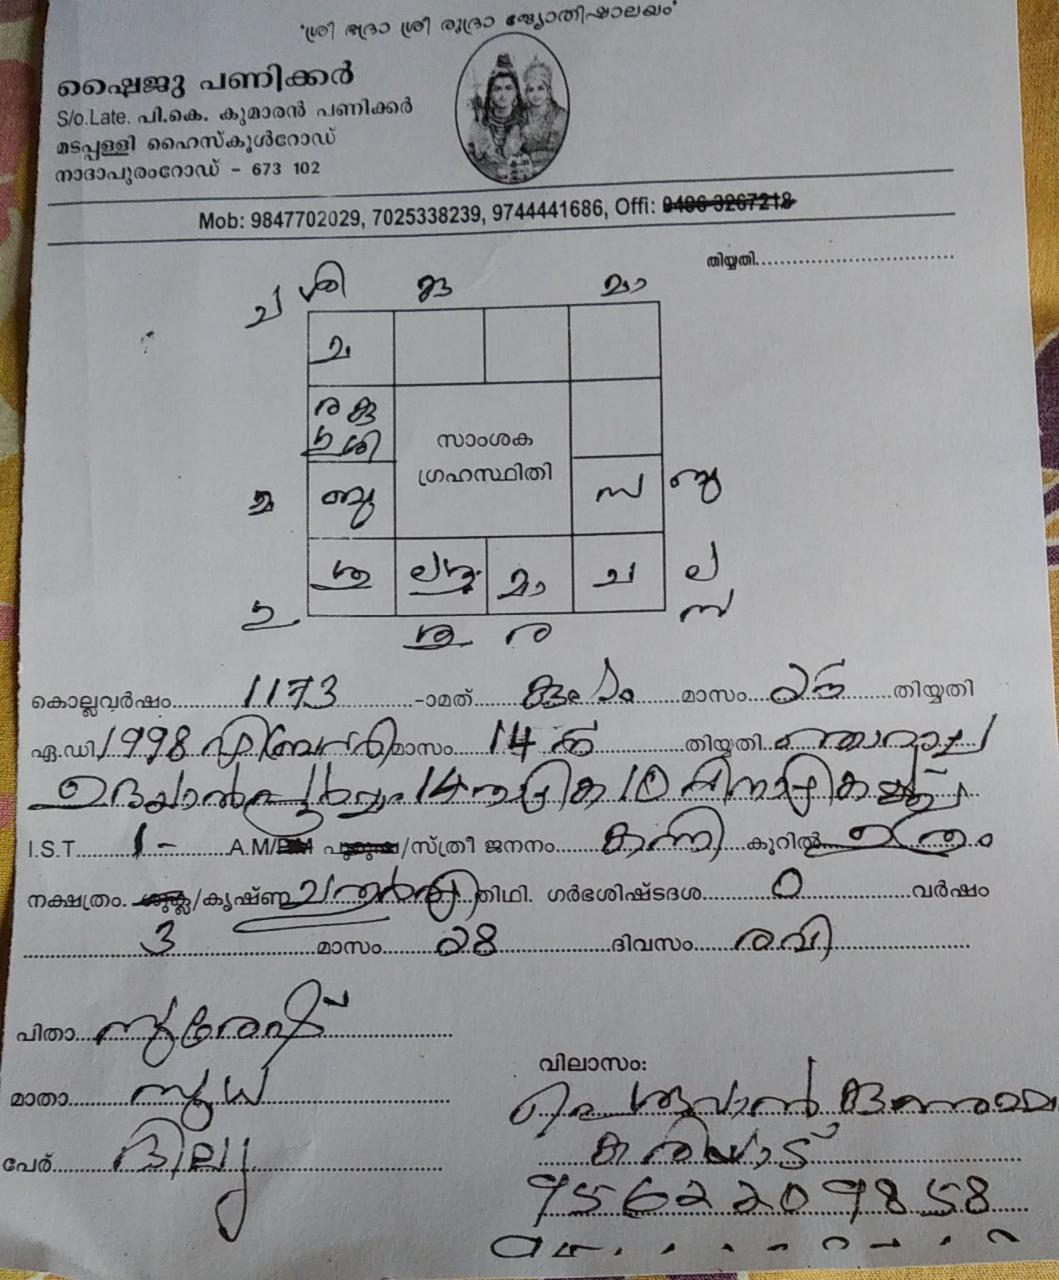 'ശ്രീ ഭദ്രാ ശ്രീ രുദ്രാ ജ്യോതിഷാലയം'
ഷൈജു പണിക്കർ
S/o.Late. പി.കെ. കുമാരൻ പണിക്കർ
മടപ്പള്ളി ഹൈസ്കൂൾറോഡ്
നാദാപുരംറോഡ് - 673 102
Mob: 9847702029, 7025338239, 9744441686, Offi: 0496 3267218
തിയ്യതി
ച ശി കു മാ
മ
ര കു
ശി
സാംശക
ഗ്രഹസ്ഥിതി
ബു സ ബു
ശു മാ ച ല
സ
ശു ര
കൊല്ലവർഷം 1173 -ാമത് കുംഭം മാസം 2 തിയ്യതി
ഏ.ഡി 1998 ഫിബ്രവരി മാസം 14 തിയ്യതി
ഉദയാൽപൂർവ്വം 14 നാഴിക 10 വിനാഴികക്ക്
I.S.T 1- A.M/PM പുരുഷ/സ്ത്രീ ജനനം കന്നി കൂറിൽ ഉത്രം
നക്ഷത്രം. ശുക്ല/കൃഷ്ണ ചതുർത്ഥി തിഥി. ഗർഭശിഷ്ടദശ 0 വർഷം
3 മാസം 28 ദിവസം രവി
പിതാ സുരേഷ്
മാതാ സുധ
പേര് ദിവ്യ
വിലാസം:
കരിയാട്
9562209858